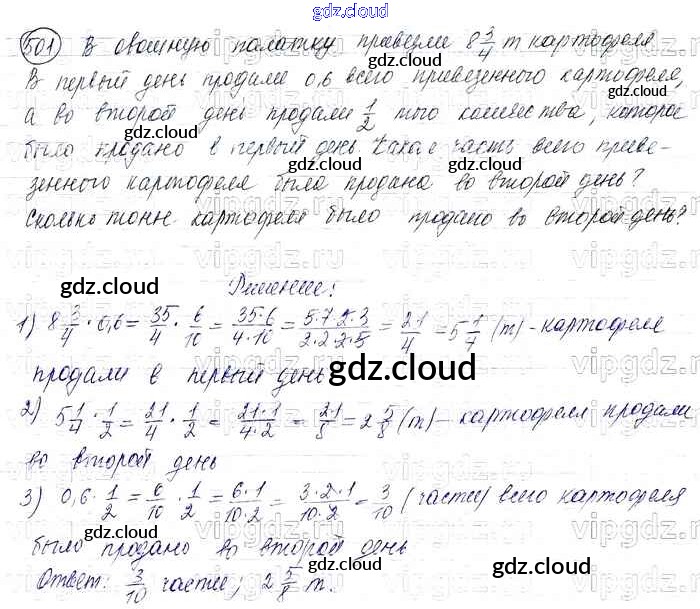 gdz.cloud
501) В овощную палатку привезли 8 3/4 т картофеля.
В первый день продали 0,6 всего привезенного картофеля,
а во второй день продали 1/2 того количества, которое
было продано в первый день. Какая часть всего приве-
зенного картофеля была продана во второй день?
Сколько тонн картофеля было продано во второй день?
Решение:
1) 8 3/4 · 0,6 = 35/4 · 6/10 = 35·6/4·10 = 5·7·2·3/2·2·2·5 = 21/4 = 5 1/4 (т) - картофеля
продали в первый день
2) 5 1/4 · 1/2 = 21/4 · 1/2 = 21·1/4·2 = 21/8 = 2 5/8 (т) - картофеля продали
во второй день
3) 0,6 · 1/2 = 6/10 · 1/2 = 6·1/10·2 = 3·2·1/10·2 = 3/10 (части) всего картофеля
было продано во второй день
Ответ: 3/10 части; 2 5/8 т.